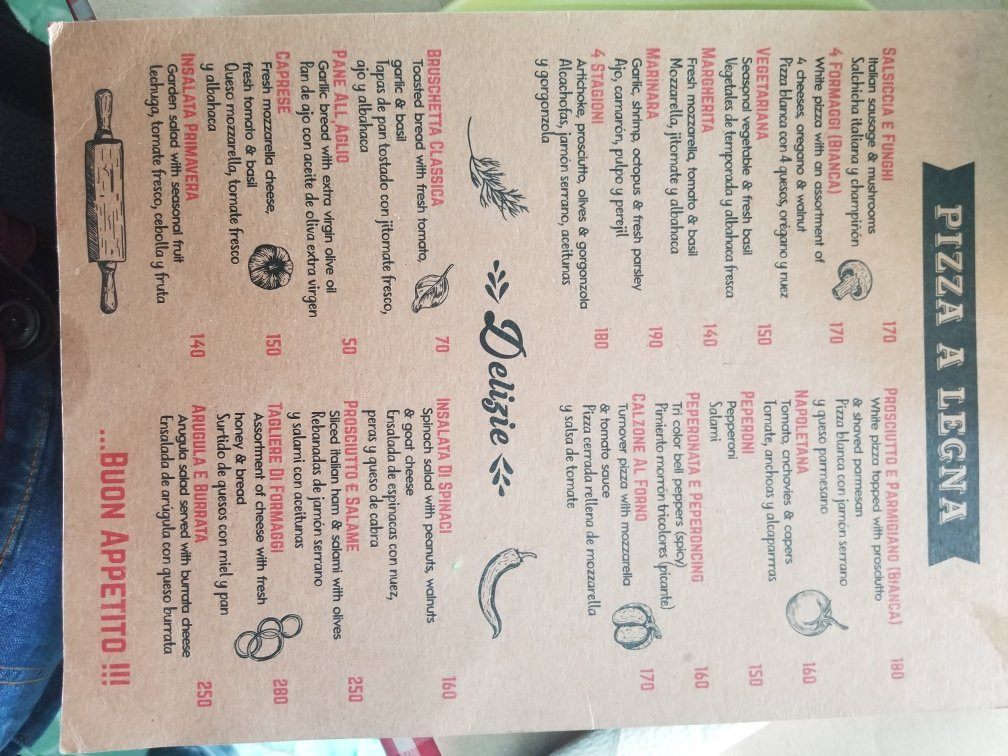 PIZZA A LEGNA
SALSICCIA E FUNGHI 170
Italian sausage & mushrooms
Salchicha italiana y champiñón
4 FORMAGGI (BIANCA) 170
White pizza with an assortment of
4 cheeses, oregano & walnut
Pizza blanca con 4 quesos, orégano y nuez
VEGETARIANA 150
Seasonal vegetable & fresh basil
Vegetales de temporada y albahaca fresca
MARGHERITA 140
Fresh mozzarella, tomato & basil
Mozzarella, jitomate y albahaca
MARINARA 190
Garlic, shrimp, octopus & fresh parsley
Ajo, camarón, pulpo y perejil
4 STAGIONI 180
Artichoke, prosciutto, olives & gorgonzola
Alcachofas, jamón serrano, aceitunas
y gorgonzola
PROSCIUTTO E PARMIGIANO (BIANCA) 180
White pizza topped with prosciutto
& shaved parmesan
Pizza blanca con jamón serrano
y queso parmesano
NAPOLETANA 160
Tomato, anchovies & capers
Tomate, anchoas y alcaparras
PEPERONI 150
Pepperoni
Salami
PEPERONATA E PEPERONCINO 160
Tri color bell peppers (spicy)
Pimiento morrón tricolores (picante)
CALZONE AL FORNO 170
Turnover pizza with mozzarella
& tomato sauce
Pizza cerrada rellena de mozzarella
y salsa de tomate
Delizie
BRUSCHETTA CLASSICA 70
Toasted bread with fresh tomato,
garlic & basil
Tapas de pan tostado con jitomate fresco,
ajo y albahaca
PANE ALL'AGLIO 50
Garlic bread with extra virgin olive oil
Pan de ajo con aceite de oliva extra virgen
CAPRESE 150
Fresh mozzarella cheese,
fresh tomato & basil
Queso mozzarella, tomate fresco
y albahaca
INSALATA PRIMAVERA 140
Garden salad with seasonal fruit
Lechuga, tomate fresco, cebolla y fruta
INSALATA DI SPINACI 160
Spinach salad with peanuts, walnuts
& goat cheese
Ensalada de espinacas con nuez,
peras y queso de cabra
PROSCIUTTO E SALAME 250
Sliced italian ham & salami with olives
Rebanadas de jamón serrano
y salami con aceitunas
TAGLIERE DI FORMAGGI 280
Assortment of cheese with fresh
honey & bread
Surtido de quesos con miel y pan
ARUGULA E BURRATA 250
Arugula salad served with burrata cheese
Ensalada de arúgula con queso burrata
...BUON APPETITO !!!